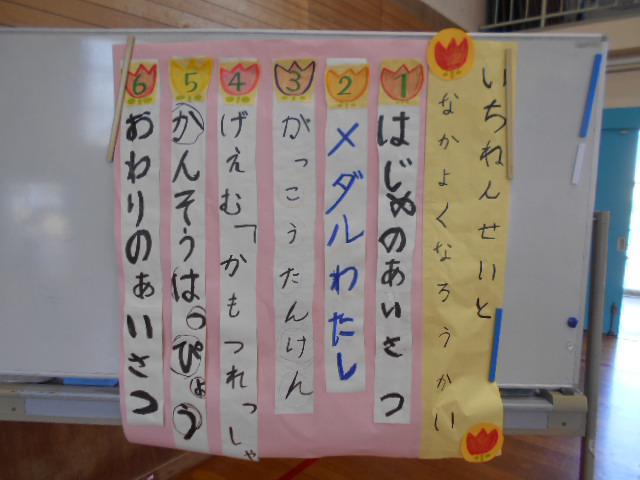 いちねんせいと
なかよくなろうかい
1 はじめのあいさつ
2 メダルわたし
3 がっこうたんけん
4 げえむ「かもつれっしゃ
5 かんそうはっぴょう
6 おわりのあいさつ